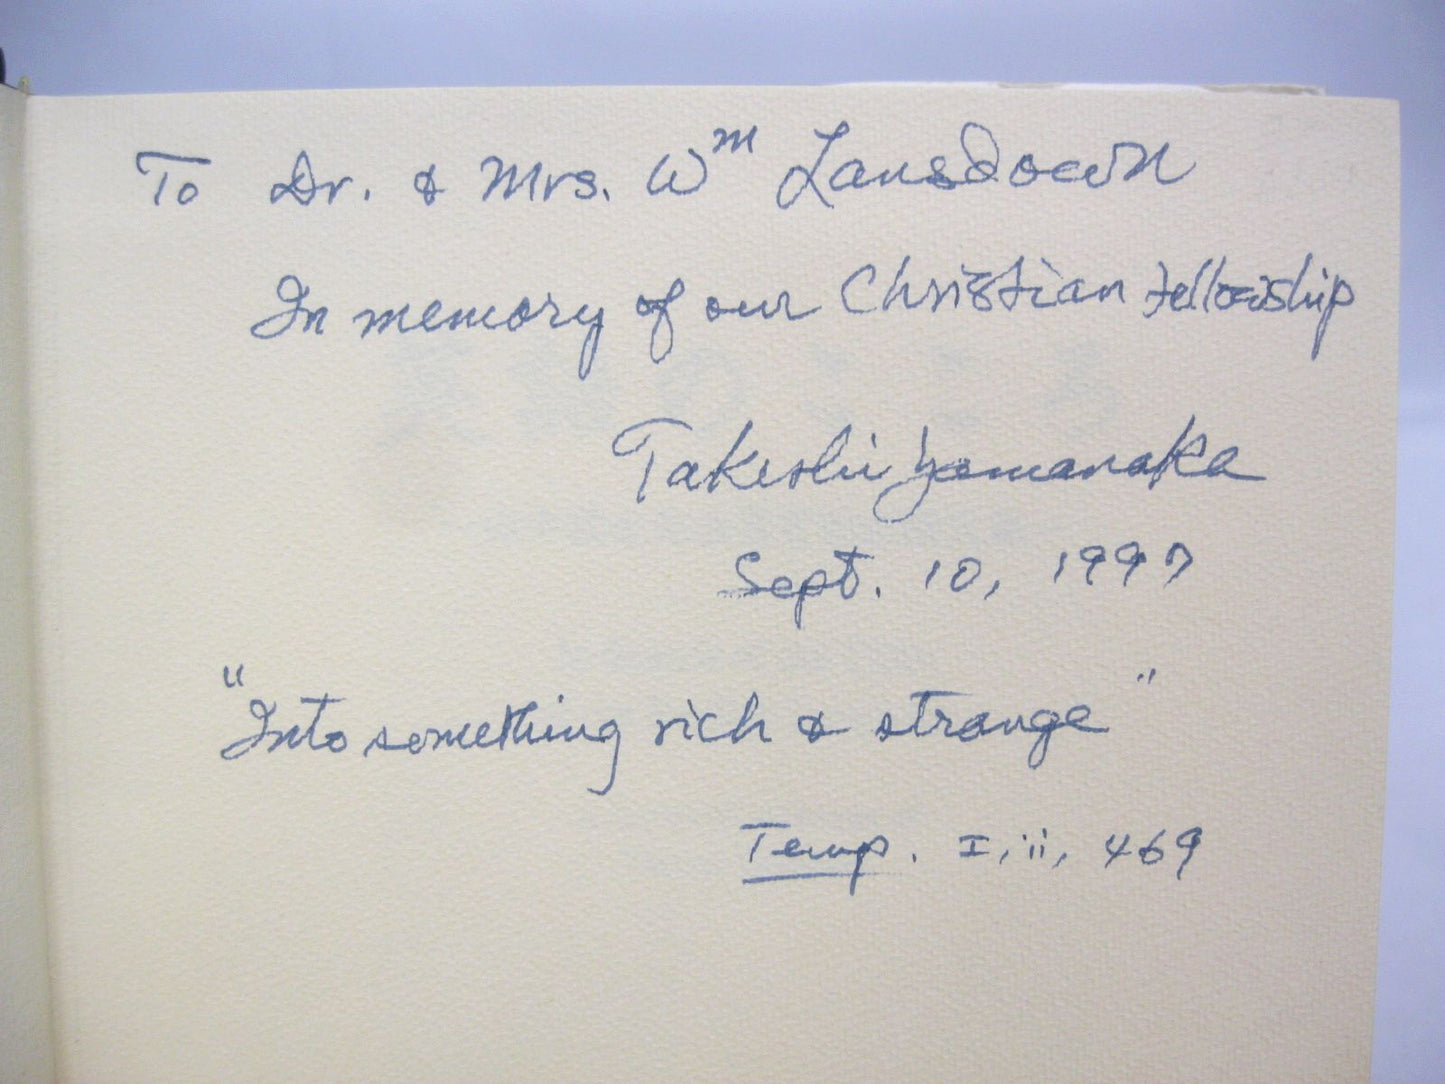 To Dr. & Mrs. Wm Lansdown
In memory of our Christian fellowship
Takeshi Yamanaka
Sept. 10, 1997
"Into something rich & strange"
Temp. I, ii, 469